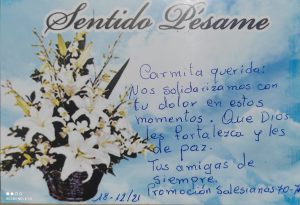 Sentido Pésame
Carmita querida:
Nos solidarizamos con
tu dolor en estos
momentos. Que Dios
les fortalezca y les
de paz.
Tus amigas de
siempre.
Promoción Salesianas 70-
18-12/21